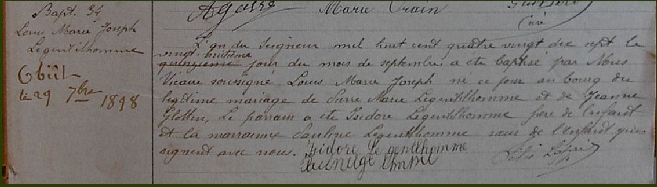 Bapt. 34
Louis Marie Joseph
Legentilhomme
Obiit
le 29 7bre 1898
Marie
L'an du Seigneur mil huit cent quatre vingt dix sept le
vingt huitième
quinzième jour du mois de septembre a été baptisé par Nous
Vicaire soussigné Louis Marie Joseph né ce jour au bourg du
légitime mariage de Pierre Marie Legentilhomme et de Jeanne
Le parrain a été Isidore Legentilhomme frère de l'enfant
et la marraine Pauline Legentilhomme sœur de l'enfant qui
signent avec nous. Isidore Le gentilhomme